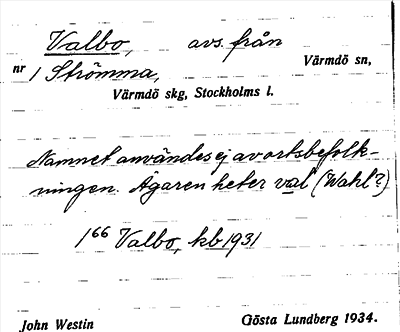 Valbo, avs. från
Värmdö sn,
nr 1 Strömma,
Värmdö skg, Stockholms l.
Namnet användes ej av ortsbefolk-
ningen. Ägaren heter val (Wahl?)
1⁶⁶ Valbo, kb 1931
John Westin Gösta Lundberg 1934.